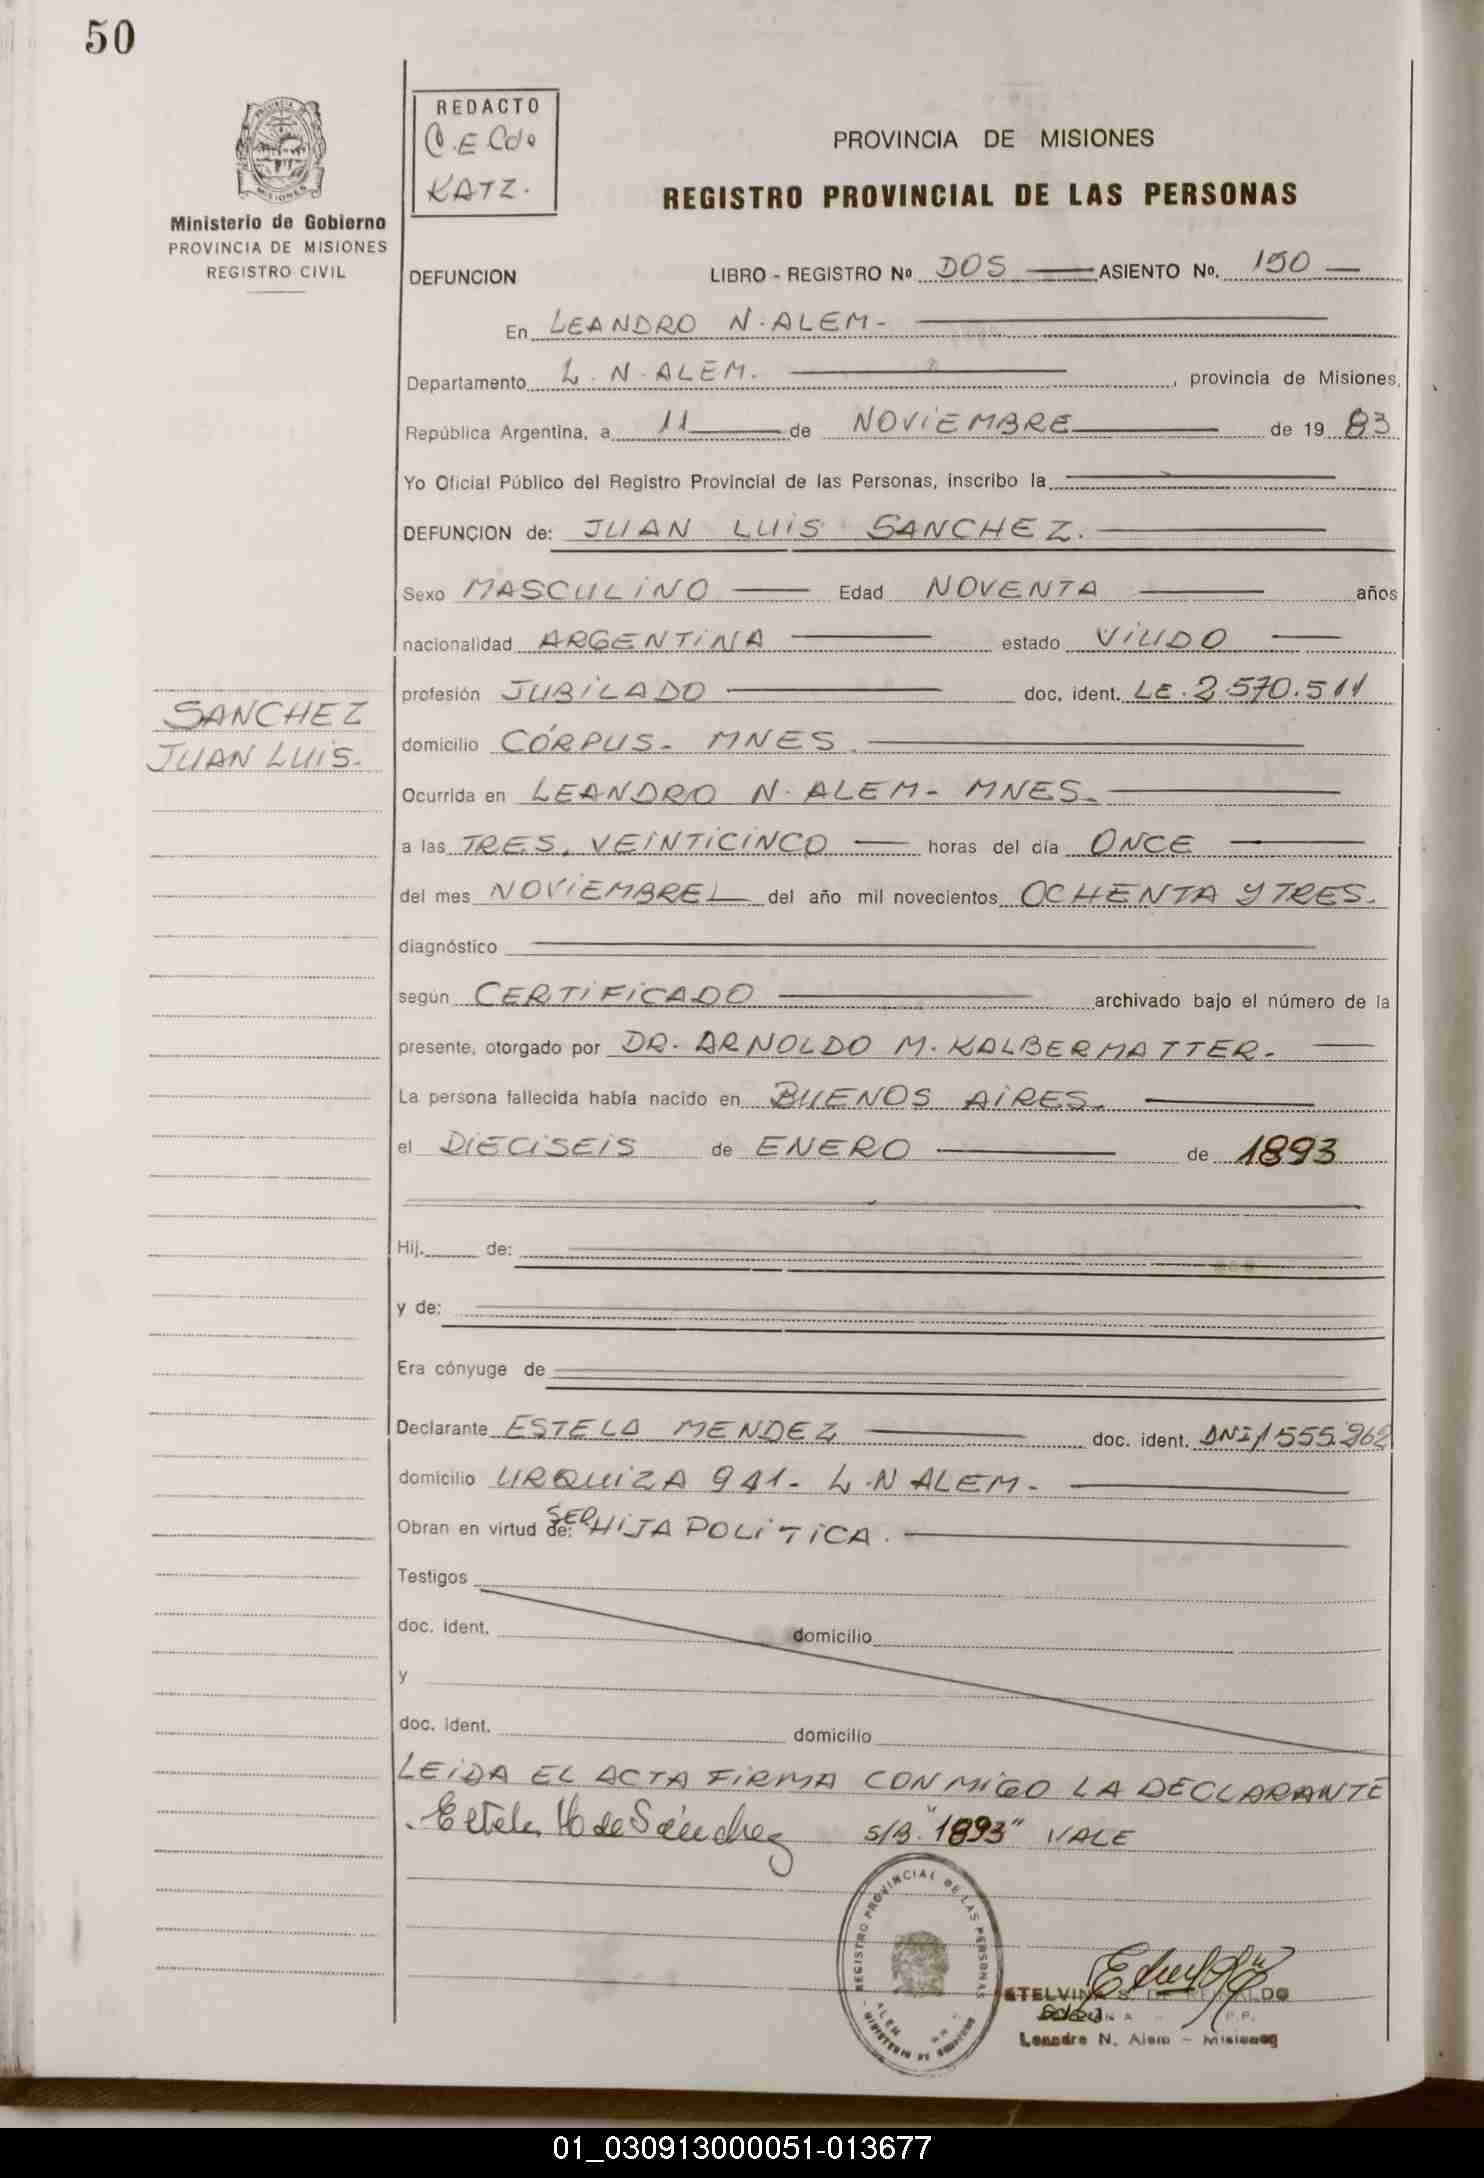 50
REDACTO
C.E.Cdo
KATZ.
PROVINCIA DE MISIONES
REGISTRO PROVINCIAL DE LAS PERSONAS
Ministerio de Gobierno
PROVINCIA DE MISIONES
REGISTRO CIVIL
DEFUNCION LIBRO - REGISTRO Nº DOS ASIENTO Nº. 150
En LEANDRO N. ALEM-
Departamento L. N. ALEM. , provincia de Misiones,
República Argentina, a 11 de NOVIEMBRE de 19 83
Yo Oficial Público del Registro Provincial de las Personas, inscribo la
DEFUNCION de: JUAN LUIS SANCHEZ.
Sexo MASCULINO Edad NOVENTA años
nacionalidad ARGENTINA estado VIUDO
profesión JUBILADO doc. ident. LE. 2.570.511
SANCHEZ
JUAN LUIS.
domicilio CÓRPUS- MNES.
Ocurrida en LEANDRO N. ALEM- MNES.
a las TRES, VEINTICINCO horas del día ONCE
del mes NOVIEMBRE del año mil novecientos OCHENTA Y TRES.
diagnóstico
según CERTIFICADO archivado bajo el número de la
presente, otorgado por DR. ARNOLDO M. KALBERMATTER.
La persona fallecida había nacido en BUENOS AIRES.
el DIECISEIS de ENERO de 1893
Hij. de:
y de:
Era cónyuge de
Declarante ESTELA MENDEZ doc. ident. DNI
domicilio URQUIZA 941- L.N ALEM-
Obran en virtud de: SER HIJA POLITICA.
Testigos
doc. ident. domicilio
y
doc. ident. domicilio
LEIDA EL ACTA FIRMA CONMIGO LA DECLARANTE
Estela M de Sánchez S/B. "1893" VALE
REGISTRO PROVINCIAL DE LAS PERSONAS
ALEM
MINISTERIO DE GOBIERNO
Leandro N. Alem - Misiones
01_030913000051-013677